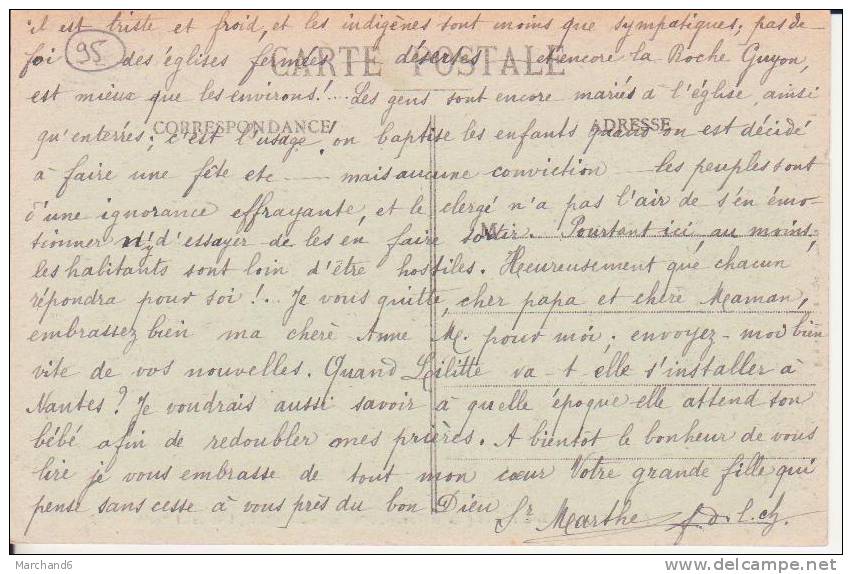 il est triste et froid, et les indigènes sont moins que sympatiques; pas de
foi 95 des églises fermées désertes et encore la Roche Guyon,
CARTE POSTALE
est mieux que les environs!.... Les gens sont encore mariés à l'église, ainsi
CORRESPONDANCE ADRESSE
qu'enterrés; c'est l'usage! on baptise les enfants quand on est décidé
à faire une fête etc — mais aucune conviction — les peuples sont
d'une ignorance effrayante, et le clergé n'a pas l'air de s'en émo-
tionner ny d'essayer de les en faire sortir. Pourtant ici, au moins,
M
les habitants sont loin d'être hostiles. Heureusement que chacun
répondra pour soi!... Je vous quitte, cher papa et chère Maman,
embrassez bien ma chère Anne M. pour moi; envoyez-moi bien
vite de vos nouvelles. Quand va-t-elle s'installer à
Nantes? Je voudrais aussi savoir à quelle époque elle attend son
bébé afin de redoubler mes prières. A bientôt le bonheur de vous
lire je vous embrasse de tout mon cœur Votre grande fille qui
pense sans cesse à vous près du bon Dieu Sr Marthe f. d. l. ch.
Marchand6
delcampe.net